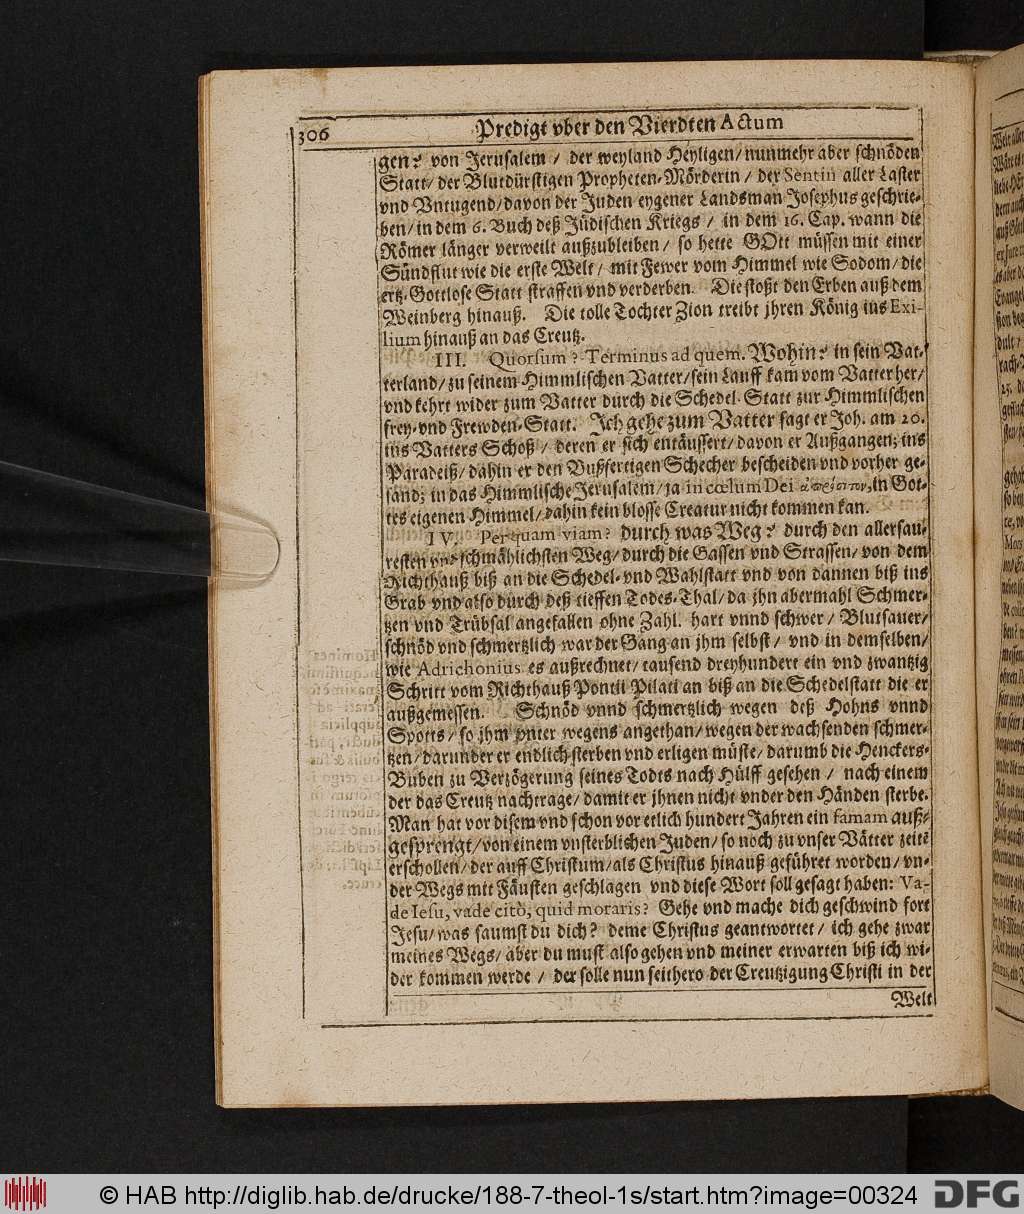 306
Predigt vber den Vierdten Actum
gen? von Jerusalem / der weyland Heyligen / nunmehr aber schnöden
Statt / der Blutdürstigen Propheten-Mörderin / der Sentin aller Laster
vnd Vntugend / davon der Juden eygener Landsman Josephus geschrie-
ben / in dem 6. Buch deß Jüdischen Kriegs / in dem 16. Cap. wann die
Römer länger verweilt außzubleiben / so hette GOtt müssen mit einer
Sündflut wie die erste Welt / mit Fewer vom Himmel wie Sodom / die
ertz-Gottlose Statt straffen vnd verderben. Die stoßt den Erben auß dem
Weinberg hinauß. Die tolle Tochter Zion treibt jhren König ins Exi-
lium hinauß an das Creutz.
III. Quorsum? Terminus ad quem. Wohin? in sein Vat-
terland / zu seinem Himmlischen Vatter / sein Lauff kam vom Vatter her /
vnd kehrt wider zum Vatter durch die Schedel-Statt zur Himmlischen
frey-vnd Frewden-Statt. Ich gehe zum Vatter sagt er Joh. am 20.
ins Vatters Schoß / deren er sich entäussert / davon er Außgangen; ins
Paradeiß / dahin er den Bußfertigen Schecher bescheiden vnd vorher ge-
sand; in das Himmlische Jerusalem / ja in cœlum Dei ἀπρόσιτον, in Got-
tes eigenen Himmel / dahin kein blosse Creatur nicht kommen kan.
IV. Per quam viam? durch was Weg? durch den allersau-
resten vnd schmählichsten Weg / durch die Gassen vnd Strassen / von dem
Richthauß biß an die Schedel-vnd Wahlstatt vnd von dannen biß ins
Grab vnd also durch deß tieffen Todes-Thal / da jhn abermahl Schmer-
tzen vnd Trübsal angefallen ohne Zahl. hart vnnd schwer / Blutsauer /
schnöd vnd schmertzlich war der Gang an jhm selbst / vnd in demselben /
wie Adrichonius es außrechnet / tausend dreyhundert ein vnd zwantzig
Schritt vom Richthauß Pontii Pilati an biß an die Schedelstatt die er
außgemessen. Schnöd vnnd schmertzlich wegen deß Hohns vnnd
Spotts / so jhm vnter wegens angethan / wegen der wachsenden schmer-
tzen / darunder er endlich sterben vnd erligen müste / darumb die Henckers-
Buben zu Verzögerung seines Todts nach Hülff gesehen / nach einem
der das Creutz nachtrage / damit er jhnen nicht vnder den Händen sterbe.
Man hat vor disem vnd schon vor etlich hundert Jahren ein famam auß-
gesprengt / von einem vnsterblichen Juden / so noch zu vnser Vätter zeitē
erschollen / der auff Christum / als Christus hinauß geführet worden / vn-
der Wegs mit Fäusten geschlagen vnd diese Wort soll gesagt haben: Va-
de Iesu, vade citò, quid moraris? Gehe vnd mache dich geschwind fort
Jesu / was saumst du dich? deme Christus geantwortet / ich gehe zwar
meines Wegs / aber du must also gehen vnd meiner erwarten biß ich wi-
der kommen werde / der solle nun seithero der Creutzigung Christi in der
Welt
© HAB http://diglib.hab.de/drucke/188-7-theol-1s/start.htm?image=00324
DFG